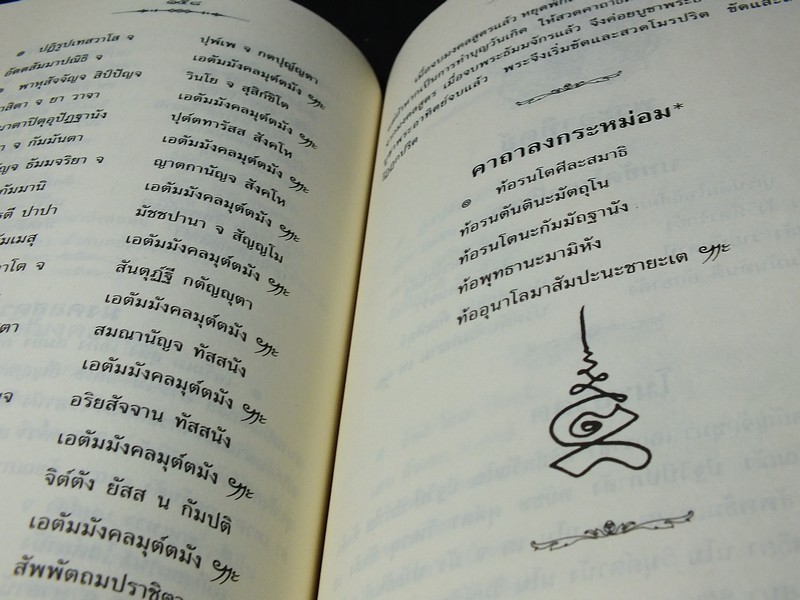 ๑๕๘
๑ ปฏิรูปเทสวาโส จ ปุพ์เพ จ กตปุญ์ญตา
อัตตสัมมาปณิธิ จ เอตัมมังคลมุต์ตมัง ฯ
๑ พาหุสัจจัญจ สิปปัญจ วินโย จ สุสิกขิโต
าสิตา จ ยา วาจา เอตัมมังคลมุต์ตมัง ฯ
มาตาปิตุอุปัฏฐานัง ปุต์ตทารัสส สังคโห
จ กัมมันตา เอตัมมังคลมุต์ตมัง ฯ
ญจ ธัมมจริยา จ ญาตกานัญจ สังคโห
กัมมานิ เอตัมมังคลมุต์ตมัง ฯ
รตี ปาปา มัชชปานา จ สัญญโม
ัมเมสุ เอตัมมังคลมุต์ตมัง ฯ
าโต จ สันตุฏ์ฐี กตัญญุตา
เอตัมมังคลมุต์ตมัง ฯ
ตา สมณานัญจ ทัสสนัง
เอตัมมังคลมุต์ตมัง ฯ
ญจ อริยสัจจาน ทัสสนัง
เอตัมมังคลมุต์ตมัง ฯ
จิต์ตัง ยัสส น กัมปติ
เอตัมมังคลมุต์ตมัง ฯ
สัพพัตถมปราชิตา
เมื่อจบมงคลสูตรแล้ว หยุดพัก
เป็นการทำบุญวันเกิด ให้สวดคาถา
มงคลสูตร เมื่อจบพระธัมมจักรแล้ว จึงค่อยบูชาพระ
บูชาพระอาทิตย์จบแล้ว พระจึงเริ่มขัดและสวดโมรปริต ขัดและ
คาถาลงกระหม่อม*
๑ ท้อรนโตสีละสมาธิ
ท้อรนตันตินะมัตถุโน
ท้อรนโตนะกัมมัถฐานัง
ท้อพุทธานะมามิหัง
ท้ออุนาโลมาสัมปะนะชายะเต ฯ